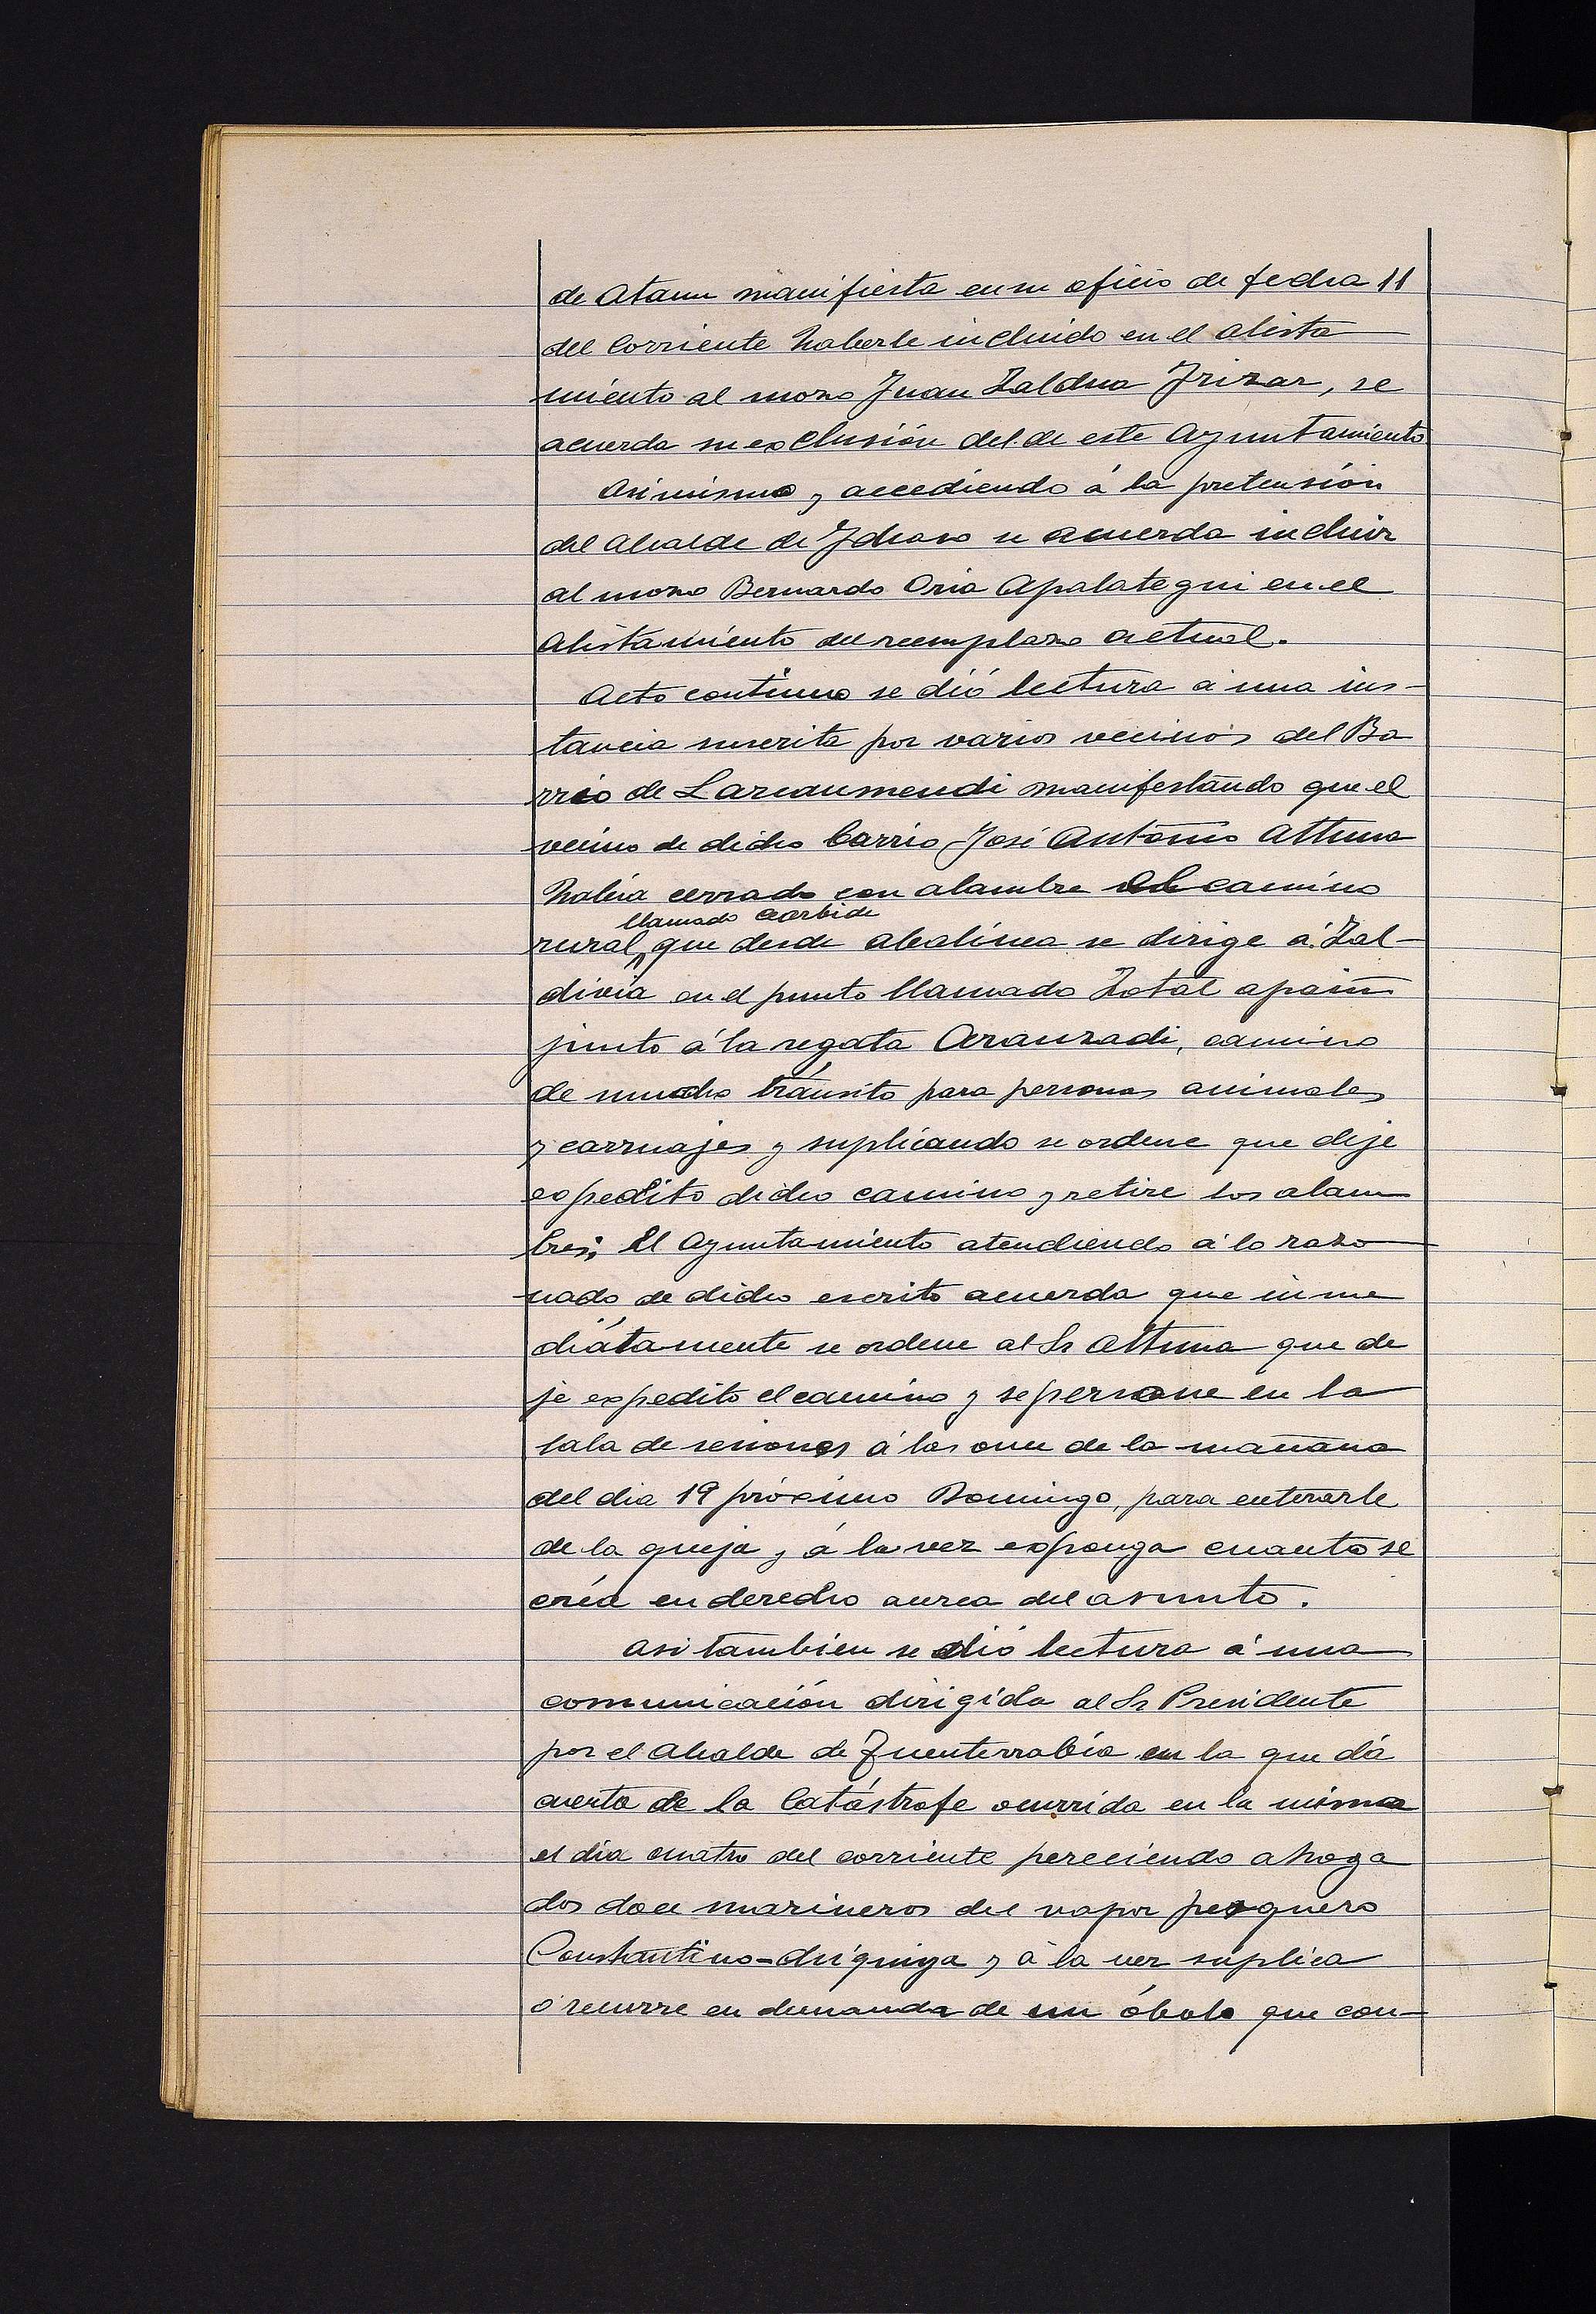 de Ataun manifiesta en su oficio de fecha 11
del corriente haberle incluido en el alista
miento al mozo Juan Zaldua Irizar, se
acuerda su exclusión del de este Ayuntamiento
Asimismo y accediendo á la pretensión
del Alcalde de Ydiazo se acuerda incluir
al mozo Bernardo Oria Apalategui en el
alistamiento del reemplazo actual.
Acto continuo se dió lectura á una ins-
tancia suscrita por varios vecinos del Ba
rrio de Larcaumendi manifestando que el
vecino de dicho barrio José Antonio Altuna
había cerrado con alambre el camino
llamado Acorbide
rural que desde Alcalinea se dirige á Zal-
divia en el punto llamado Zotal apain
junto á la regata Aranzadi, camino
de mucho tránsito para personas animales
y carruajes y suplicando se ordene que deje
expedito dicho camino y retire los alam
bres; El Ayuntamiento atendiendo á lo razo
nado de dicho escrito acuerda que inme
diátamente se ordene al Sr Altuna que de
je expedito el camino y se persone en la
sala de sesiones á las once de la mañana
del dia 19 próximo Domingo, para enterarle
de la queja y á la vez exponga cuanto se
créa en derecho acerca del asunto.
Asi tambien se dió lectura á una
comunicación dirigida al Sr Presidente
por el Alcalde de Fuenterrabía en la que dá
cuenta de la Catástrofe ocurrida en la misma
el dia cuatro del corriente pereciendo ahoga
dos doce marineros del vapor pesquero
Constantino- y á la vez suplica
ó recurre en demanda de un óbolo que con-